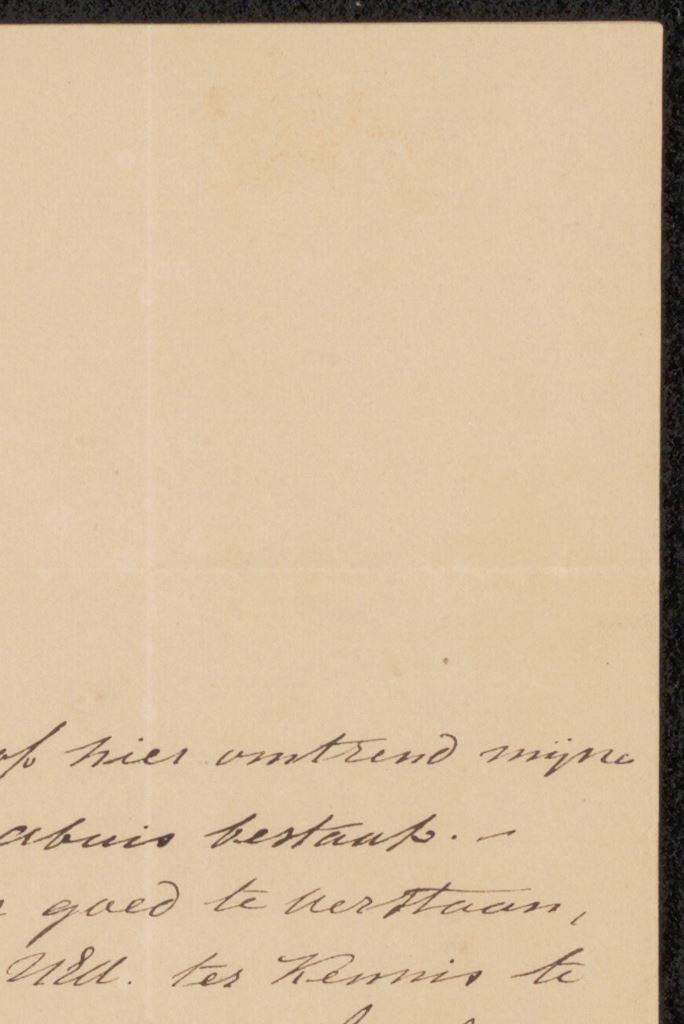 of hier omtrend mijne
abuis bestaat. –
goed te verstaan,
UEd. ter Kennis te